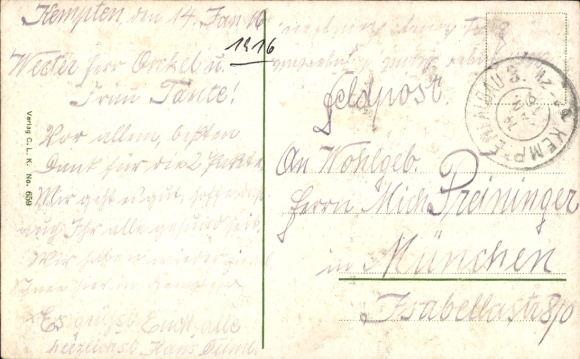 Kempten den 14. Jan 16
1916
Werter Herr Onkel u.
Frau Tante!
Vor allem, besten
Dank für die 2 Pakete.
Mir geht es gut, hoffe daß
auch Ihr alle gesund seid.
Wir haben wieder viel
Schnee hier in Kempten
Es grüßt Euch alle
herzlichst Hans
Verlag C. L. K. No. 659
Feldpost.
KEMPTEN ALLGÄU 3.
An Wohlgeb.
Herrn Mich. Preininger
in München
Isabellastr 8/0